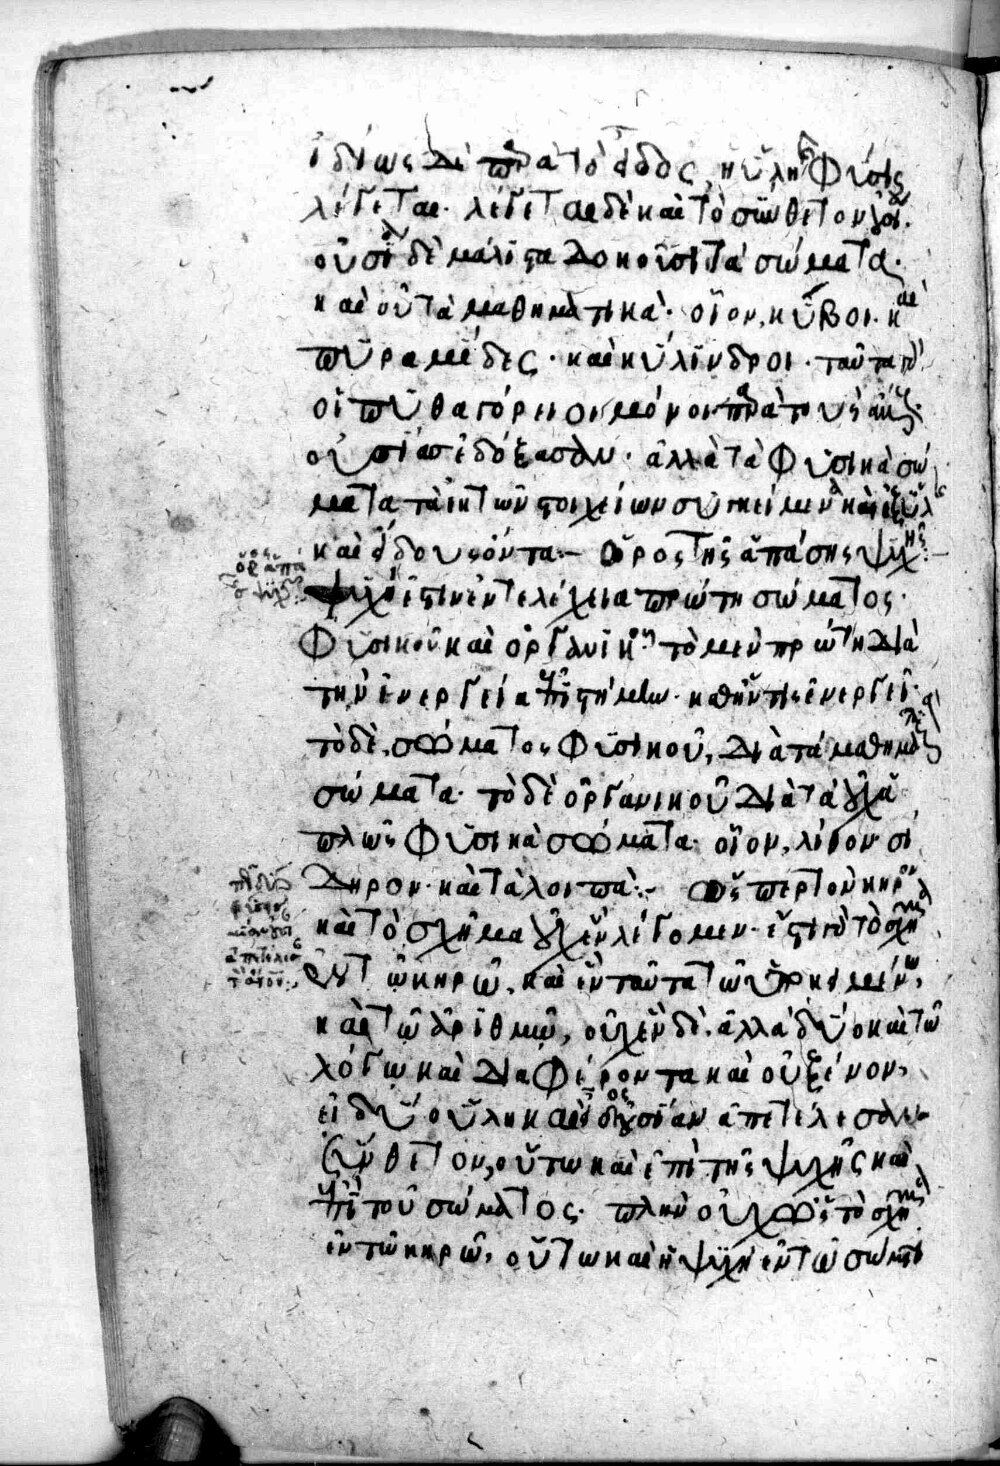 ἰδίως δὲ παρὰ τὸ εἶδος, ἡ ὕλη φύσις
λέγεται. λέγεται δὲ καὶ τὸ σύνθετον
οὐσία δὲ μάλιστα δοκοῦσι τὰ σώματα.
καὶ οὐ τὰ μαθηματικὰ. οἷον, κύβοι. καὶ
πυραμίδες. καὶ κύλινδροι. ταῦτα γὰρ
οἱ πυθαγόρειοι μόνοι παρὰ τοὺς
οὐσίας ἐδόξασαν. ἀλλὰ τὰ φυσικὰ σώ
ματα τὰ ἐκ τῶν στοιχείων συγκείμενα καὶ ἐξ ὕλης
καὶ εἴδους ὄντα:– ὅρος τῆς ἁπάσης ψυχῆς:–
ψυχή ἐστιν ἐντελέχεια πρώτη σώματος.
φυσικοῦ καὶ ὀργανικοῦ. τὸ μὲν πρώτη διὰ
τὴν ἐνέργεια ἐπιστήμην. καθ' ἥν τις ἐνεργεῖ.
τὸ δὲ, σώματος φυσικοῦ, διὰ τὰ μαθηματικὰ
σώματα. τὸ δὲ ὀργανικοῦ διὰ τὰ ἁ
πλῶς φυσικὰ σώματα. οἷον, λίθον. σί
δηρον. καὶ τὰ λοιπὰ:– ὥσπερ τὸν κηρὸν
καὶ τὸ σχῆμα οὐχ ἓν λέγομεν. ἔστι τὸ σχῆμα
ἐν τῷ κηρῷ, καὶ ἐν ταῦτα τῷ ὑποκειμένῳ,
καὶ τῷ ἀριθμῷ, οὐχ ἓν δὲ. ἀλλὰ δύο καὶ τῷ
λόγῳ καὶ διαφέροντα καὶ οὐ ξένον,
εἰ δύο ὕλη καὶ εἶδος οὐσίαν ἀπετέλεσαν
ξύνθετον, οὕτω καὶ ἐπὶ τῆς ψυχῆς καὶ
ἐπὶ τοῦ σώματος. πλὴν οὐχ ὡς τὸ σχῆμα
ἐν τῷ κηρῷ, οὕτω καὶ ἡ ψυχὴ ἐν τῷ σώματι
ὅρος ἁπά
σ ψυχῆς: